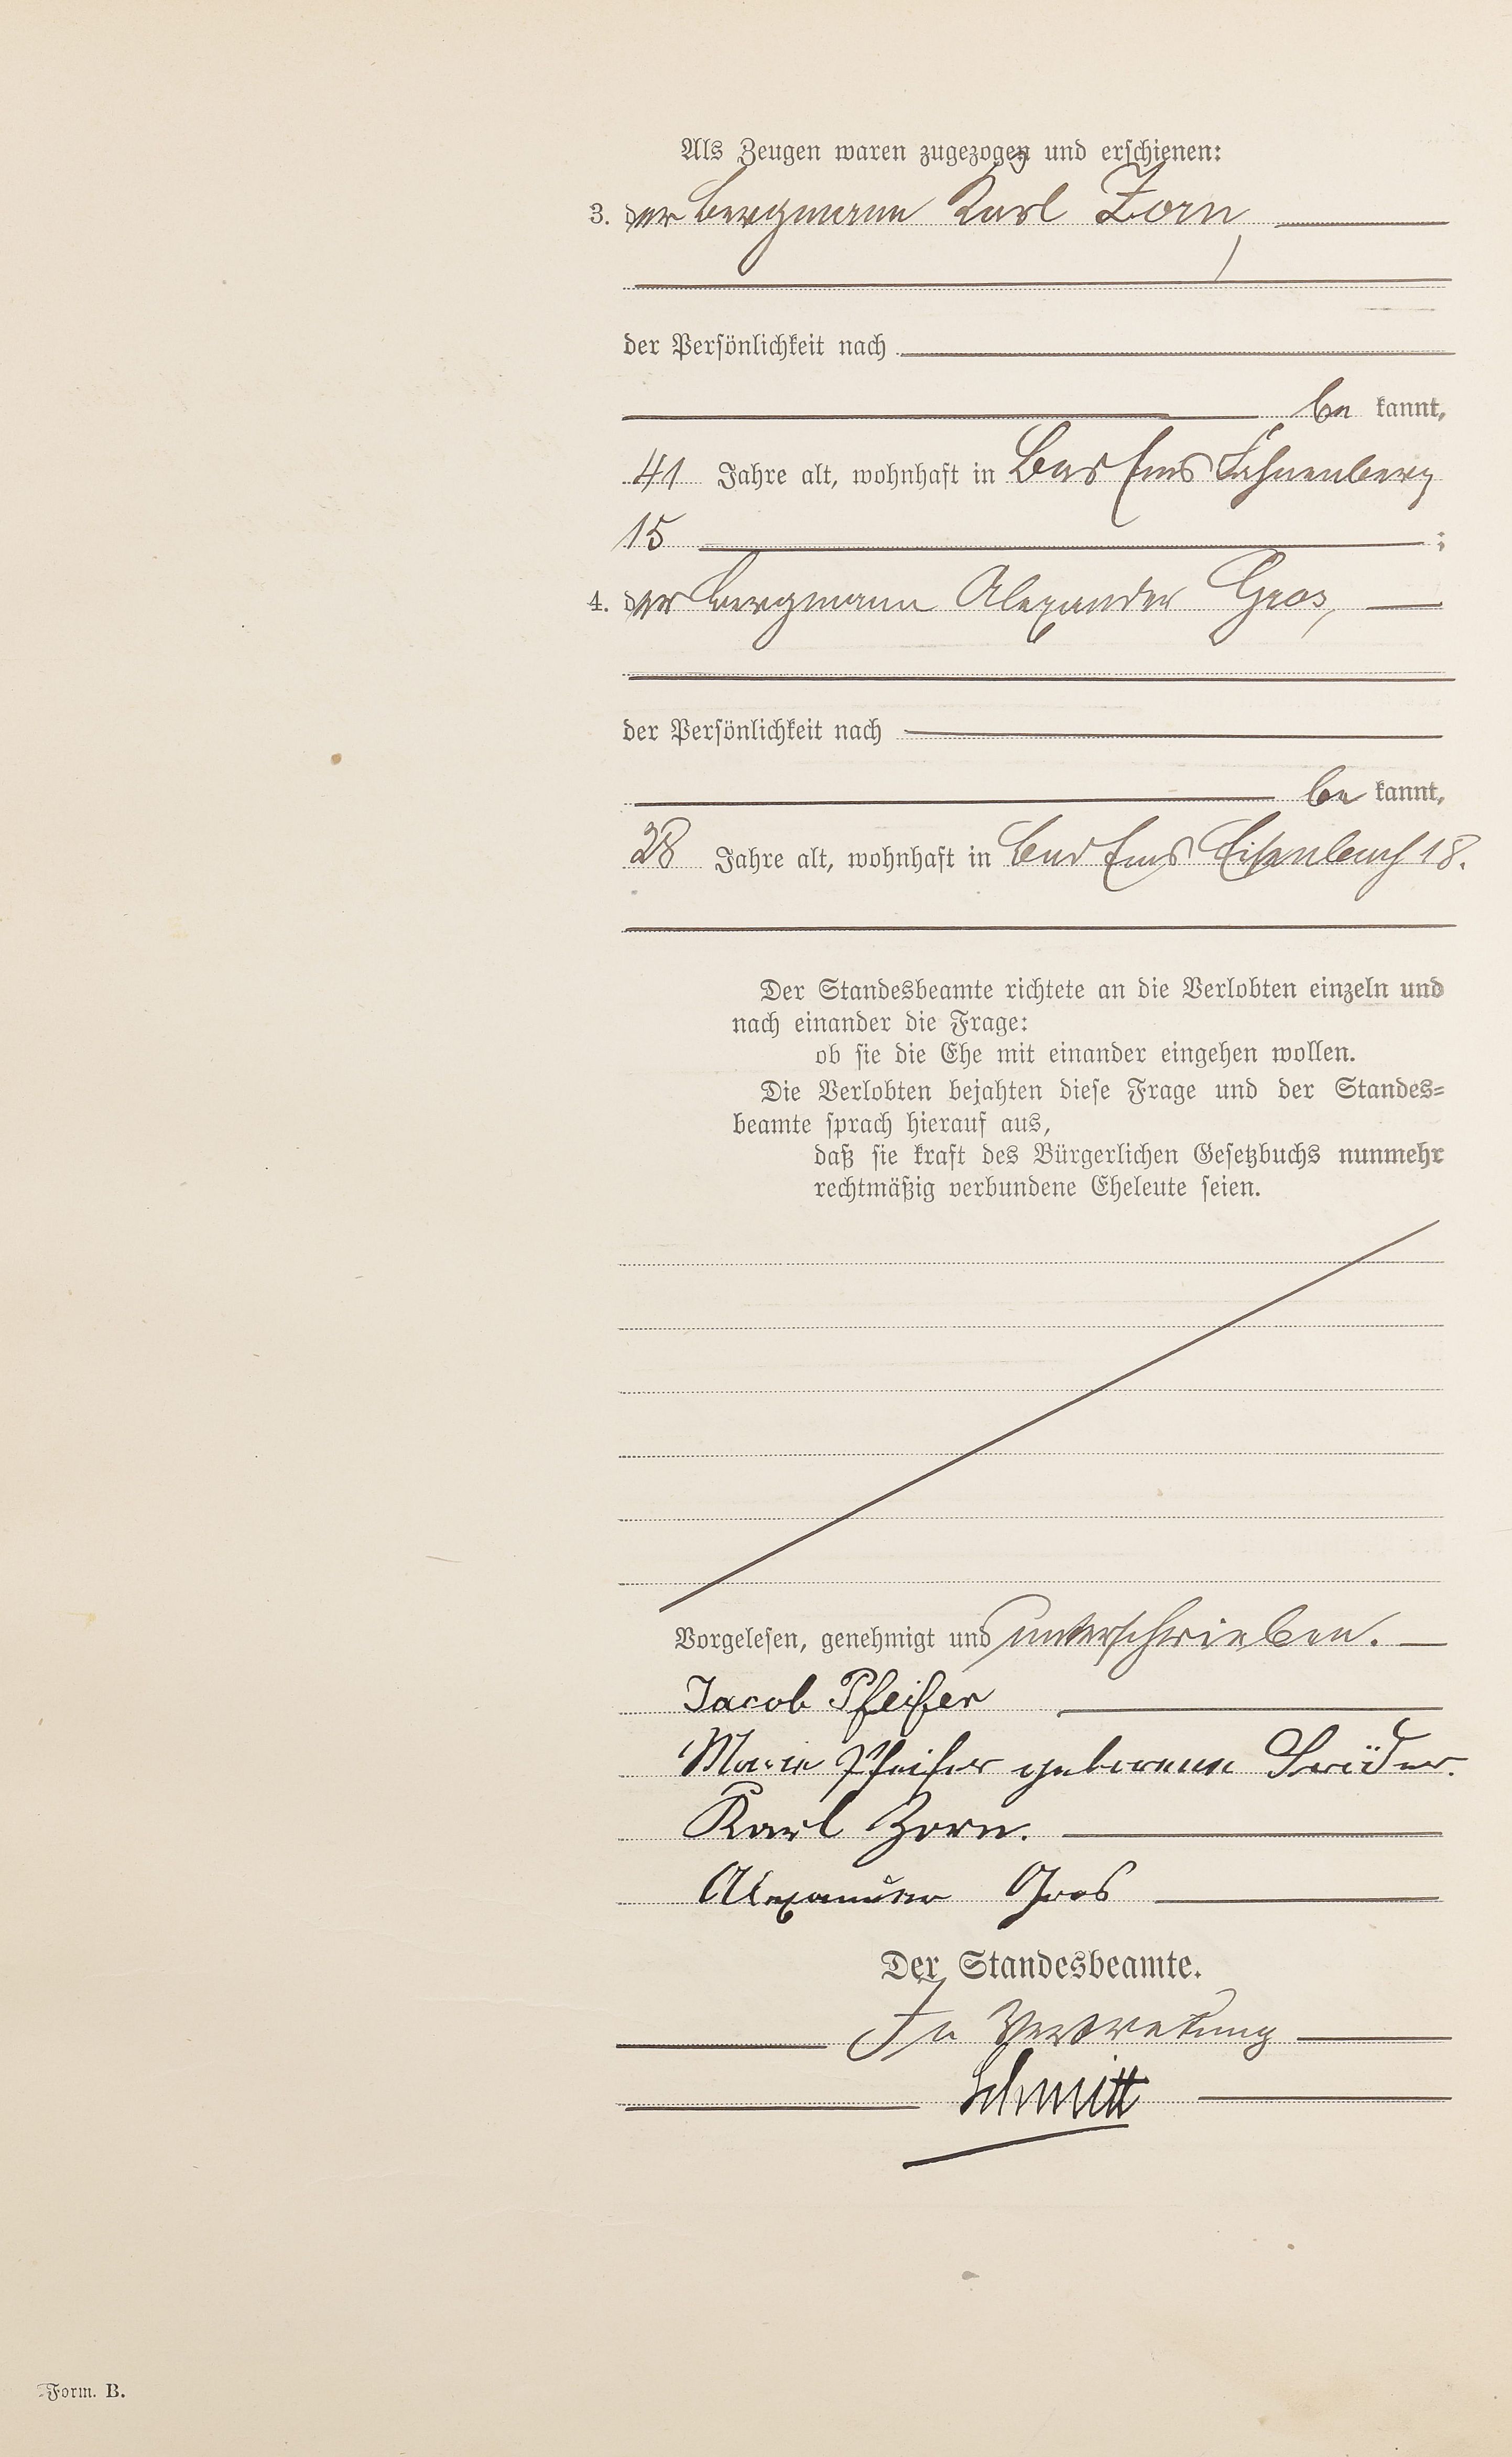 Als Zeugen waren zugezogen und erschienen:
3. der Bergmann Karl Zorn,
der Persönlichkeit nach
be kannt,
41 Jahre alt, wohnhaft in Bad Ems Fahnenberg
15 ;
4. der Bergmann Alexander Gros,
der Persönlichkeit nach
be kannt,
28 Jahre alt, wohnhaft in Bad Ems Eisenbach 18.
Der Standesbeamte richtete an die Verlobten einzeln und
nach einander die Frage:
ob sie die Ehe mit einander eingehen wollen.
Die Verlobten bejahten diese Frage und der Standes=
beamte sprach hierauf aus,
daß sie kraft des Bürgerlichen Gesetzbuchs nunmehr
rechtmäßig verbundene Eheleute seien.
Vorgelesen, genehmigt und unterschrieben.
Jacob Pfeifer
Marie Pfeifer geborenne
Karl Zorn.
Alexander Gros
Der Standesbeamte.
In Vertretung
Schmitt
Form. B.